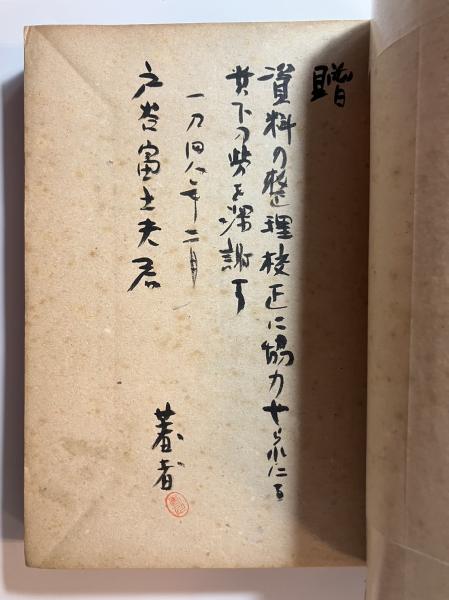 贈
資料の整理校正に協力せられたる
貴下の労を深謝す
一九四八年二月
戸谷富士夫君
著者